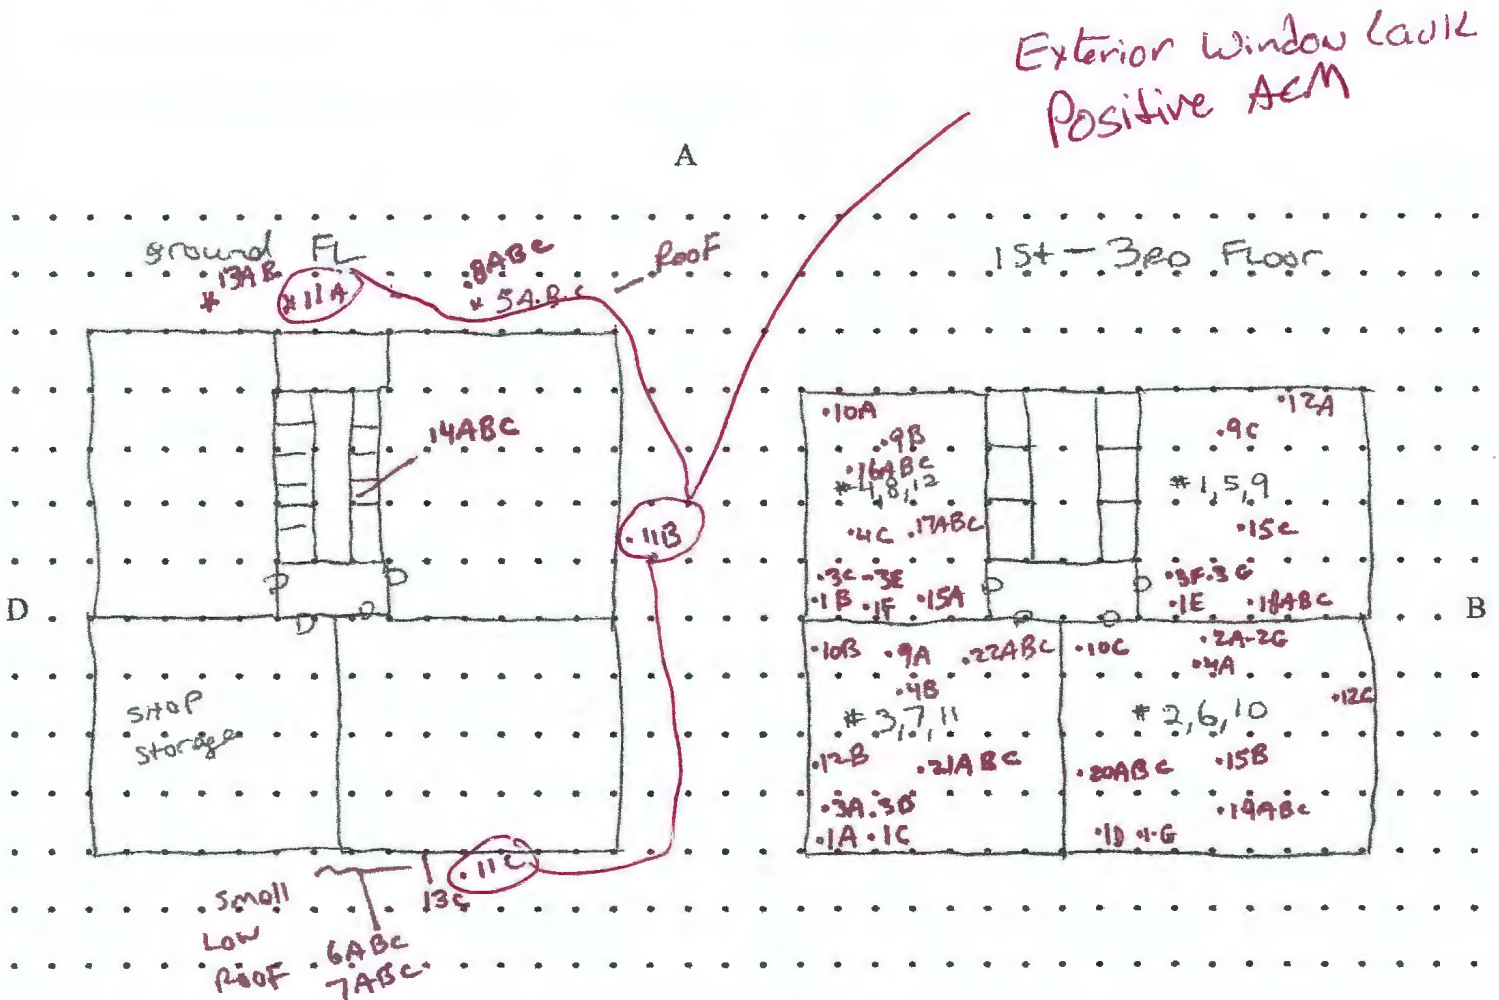 Exterior Window Caulk
Positive ACM
A
ground FL
13AB
*
*11A
8ABC
* 5A.B.C
Roof
14ABC
11B
D
Shop
Storage
11C
13C
Small
Low
Roof
6ABC
7ABC
1st - 3RD Floor
10A
9B
16ABC
#4,8,12
4C
17ABC
3C - 3E
1B
1F
15A
12A
9C
#1,5,9
15C
3F.3G
1E
18ABC
B
10B
9A
22ABC
4B
#3,7,11
12B
21ABC
3A.3D
1A
1C
10C
2A-2G
4A
12C
#2,6,10
20ABC
15B
19ABC
1D
1G